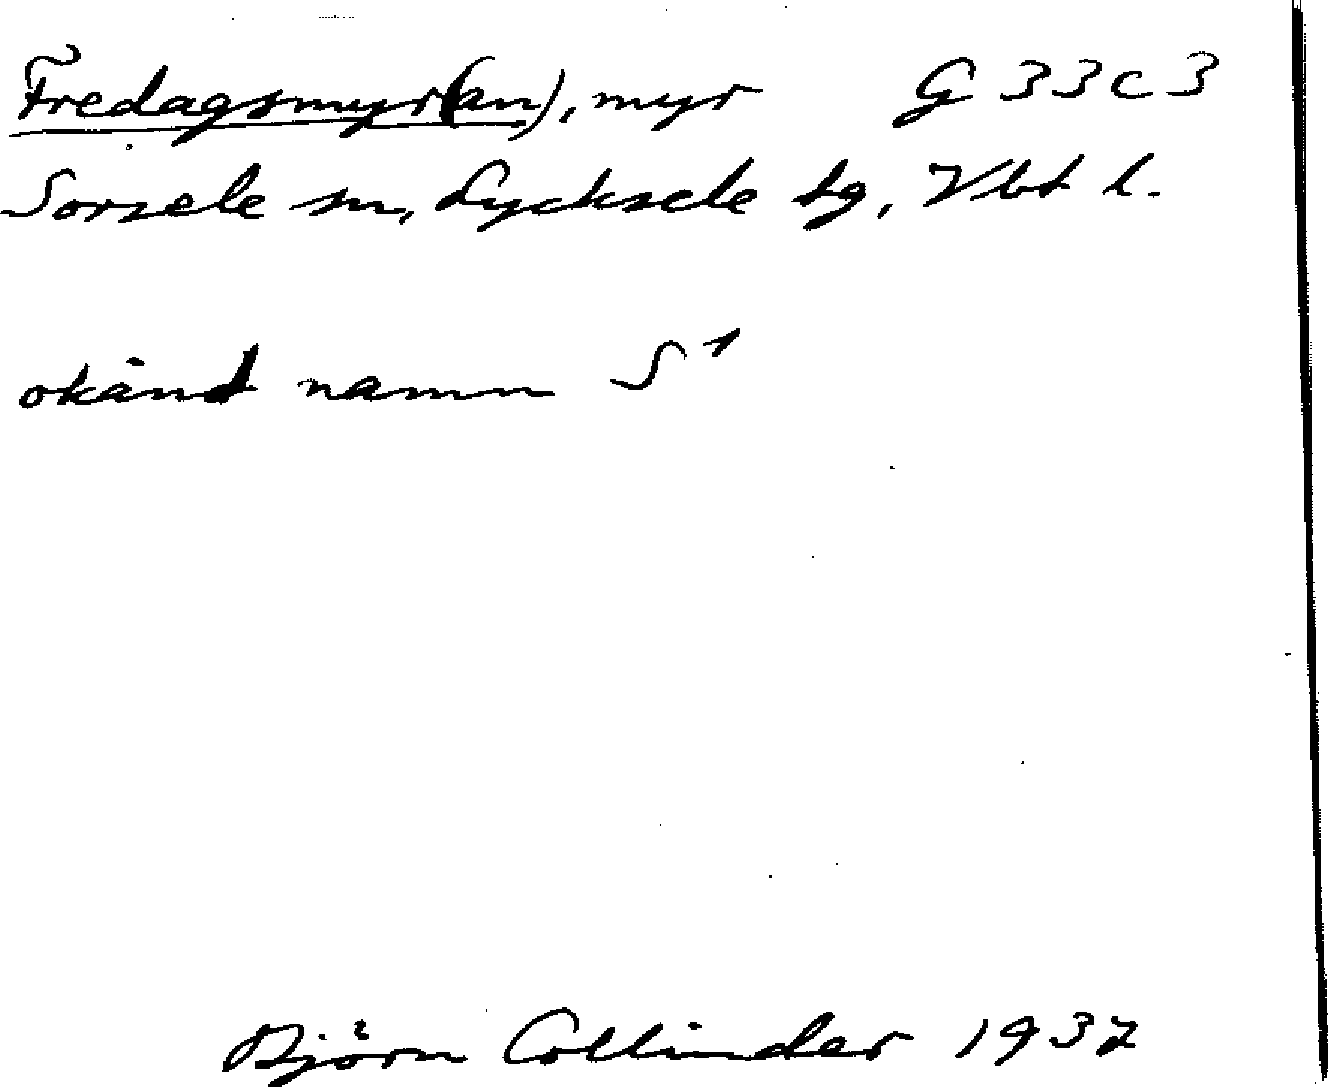 Fredagsmyr(an), myr G 33 c 3
Sorsele sn, Lycksele tg, Vbt l.
okänd namn S¹
Björn Collinder 1937